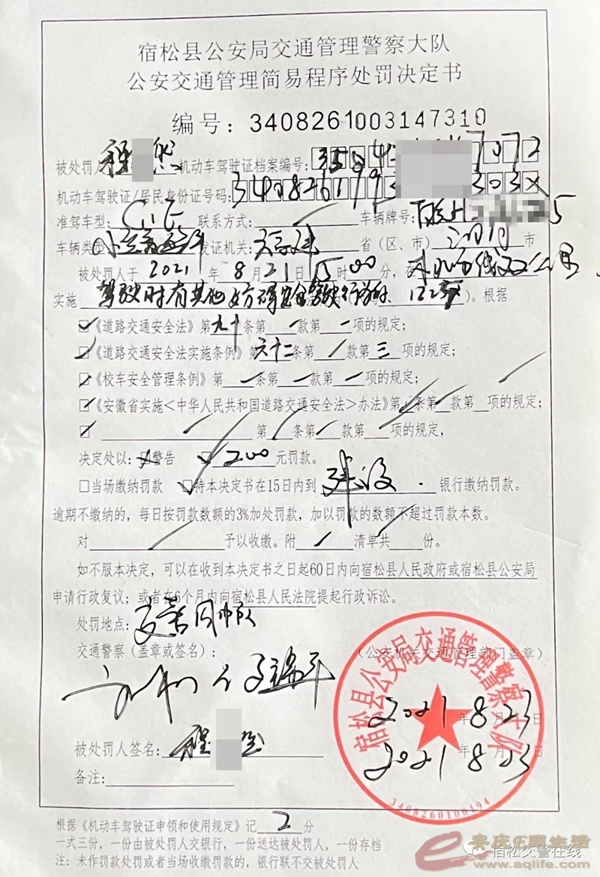 宿松县公安局交通管理警察大队
公安交通管理简易程序处罚决定书
编号：3408261003147310
被处罚人 程 机动车驾驶证档案编号： 7072
机动车驾驶证/居民身份证号码： 34082619 303X
准驾车型： 联系方式： 车辆牌号： 5
车辆类 发证机关： 省（区、市） 市
被处罚人于 2021 年 8 月 21 日 15 时 00 分，
实施 驾驶时有其他妨碍安全驾驶行为 。根据
《道路交通安全法》第九十条第一款第一项的规定；
《道路交通安全法实施条例》第六十二条第/款第三项的规定；
《校车安全管理条例》第 条第 款第 项的规定；
《安徽省实施<中华人民共和国道路交通安全法>办法》第 条第 款第 项的规定；
第 条第 款第 项的规定，
决定处以：警告 200 元罚款。
当场缴纳罚款 持本决定书在15日内到 建设 银行缴纳罚款。
逾期不缴纳的，每日按罚款数额的3%加处罚款，加以罚款的数额不超过罚款本数。
对 予以收缴。附 清单共 份。
如不服本决定，可以在收到本决定书之日起60日内向宿松县人民政府或宿松县公安局
申请行政复议；或者在6个月内向宿松县人民法院提起行政诉讼。
处罚地点：
交通警察（盖章或签名）： （公安机关交通管理部门盖章）
宿松县公安局交通管理警察大队
2021 年 8 月 23 日
2021 8 23
3408260100494
被处罚人签名： 程
备注：
根据《机动车驾驶证申领和使用规定》记 2 分
一式三份，一份由被处罚人交银行，一份送达被处罚人，一份存档
注：未作罚款处罚或者当场收缴罚款的，银行联不交被处罚人
宿松交警在线
www.aqlife.com